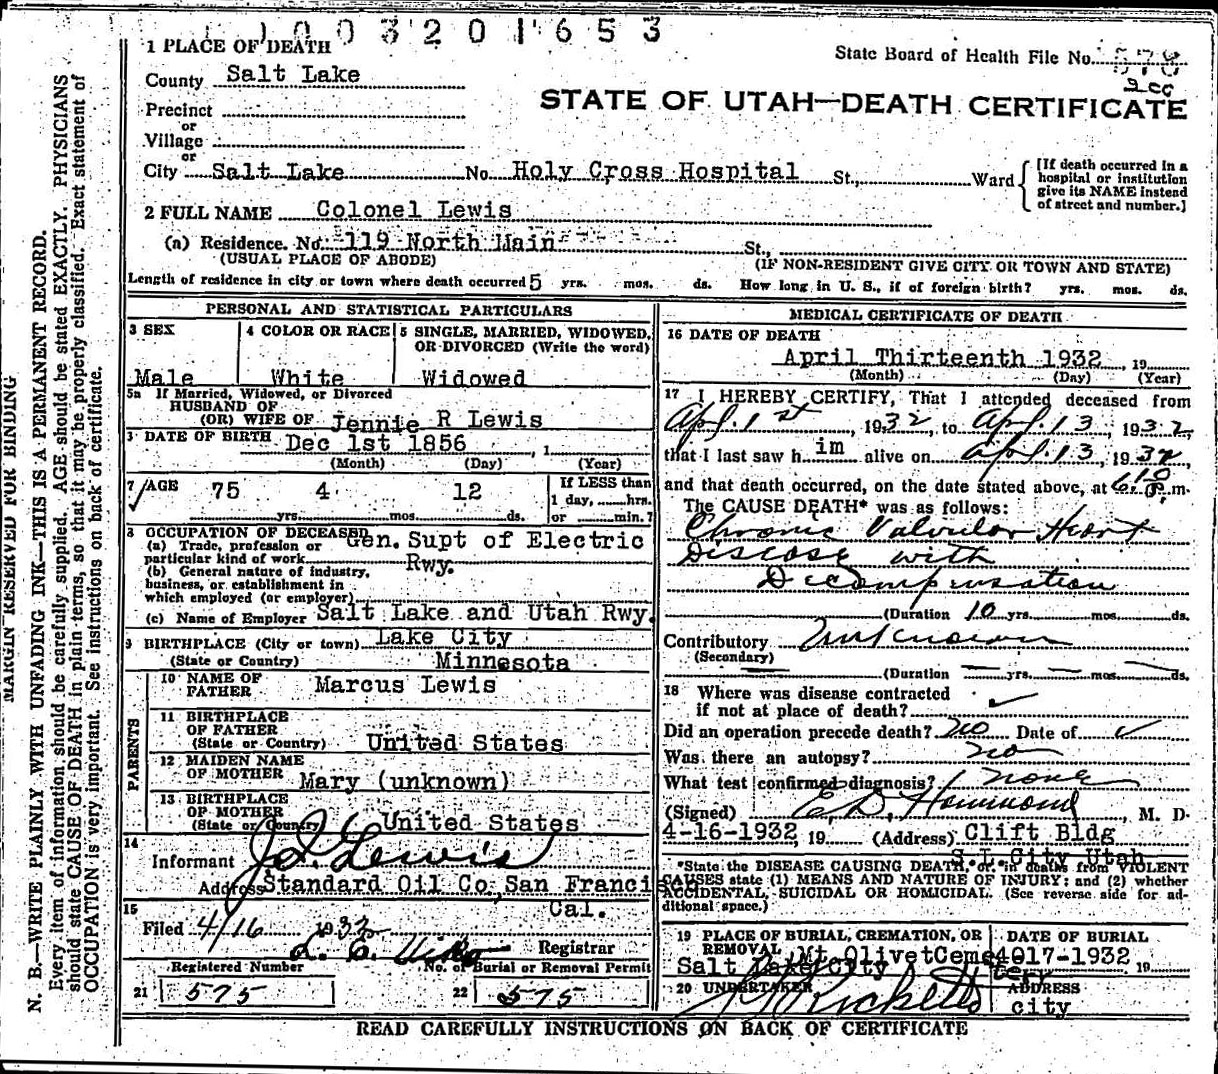 1003201653
1 PLACE OF DEATH
State Board of Health File No. 578
County Salt Lake
STATE OF UTAH—DEATH CERTIFICATE
Precinct
or
Village
or
City Salt Lake No. Holy Cross Hospital St., Ward
[If death occurred in a
hospital or institution
give its NAME instead
of street and number.]
2 FULL NAME Colonel Lewis
(a) Residence. No. 119 North Main St.,
(USUAL PLACE OF ABODE) (IF NON-RESIDENT GIVE CITY OR TOWN AND STATE)
Length of residence in city or town where death occurred 5 yrs. mos. ds. How long in U. S., if of foreign birth? yrs. mos. ds.
PERSONAL AND STATISTICAL PARTICULARS
3 SEX
Male
4 COLOR OR RACE
White
5 SINGLE, MARRIED, WIDOWED,
OR DIVORCED (Write the word)
Widowed
5a If Married, Widowed, or Divorced
HUSBAND OF
(OR) WIFE OF Jennie R Lewis
DATE OF BIRTH Dec 1st 1856 , 1
(Month) (Day) (Year)
7 AGE 75 yrs. 4 mos. 12 ds.
If LESS than
1 day, hrs.
or min.?
8 OCCUPATION OF DECEASED
(a) Trade, profession or
particular kind of work Gen. Supt of Electric
Rwy.
(b) General nature of industry,
business, or establishment in
which employed (or employer)
(c) Name of Employer Salt Lake and Utah Rwy.
9 BIRTHPLACE (City or town) Lake City
(State or Country) Minnesota
PARENTS
10 NAME OF
FATHER Marcus Lewis
11 BIRTHPLACE
OF FATHER
(State or Country) United States
12 MAIDEN NAME
OF MOTHER Mary (unknown)
13 BIRTHPLACE
OF MOTHER
(State or Country) United States
14
Informant J. Lewis
Address Standard Oil Co, San Francisco
Cal.
15
Filed 4/16 1932
Registrar
Registered Number
21 575
No. of Burial or Removal Permit
22 575
MEDICAL CERTIFICATE OF DEATH
16 DATE OF DEATH
April Thirteenth 1932 , 19
(Month) (Day) (Year)
17 I HEREBY CERTIFY, That I attended deceased from
Apl. 1st, 1932, to Apl. 13, 1932,
that I last saw him alive on Apl. 13, 1932
and that death occurred, on the date stated above, at 6:10 P. m.
The CAUSE DEATH* was as follows:
Chronic Valvular Heart
Disease with
Decompensation
(Duration 10 yrs. mos. ds.
Contributory Unknown
(Secondary)
(Duration yrs. mos. ds.
18 Where was disease contracted
if not at place of death?
Did an operation precede death? No Date of
Was there an autopsy? no
What test confirmed diagnosis? none
(Signed) E. D. Hammond, M. D.
4-16-1932, 19 (Address) Clift Bldg
S L City Utah
*State the DISEASE CAUSING DEATH, or in deaths from VIOLENT
CAUSES state (1) MEANS AND NATURE OF INJURY; and (2) whether
ACCIDENTAL, SUICIDAL OR HOMICIDAL. (See reverse side for ad-
ditional space.)
19 PLACE OF BURIAL, CREMATION, OR
REMOVAL Mt Olivet Cemetery
Salt Lake City
DATE OF BURIAL
4-17-1932 19
20 UNDERTAKER
Ricketts
ADDRESS
city
READ CAREFULLY INSTRUCTIONS ON BACK OF CERTIFICATE
MARGIN RESERVED FOR BINDING
N. B.—WRITE PLAINLY WITH UNFADING INK—THIS IS A PERMANENT RECORD.
Every item of information should be carefully supplied. AGE should be stated EXACTLY. PHYSICIANS
should state CAUSE OF DEATH in plain terms, so that it may be properly classified. Exact statement of
OCCUPATION is very important. See instructions on back of certificate.